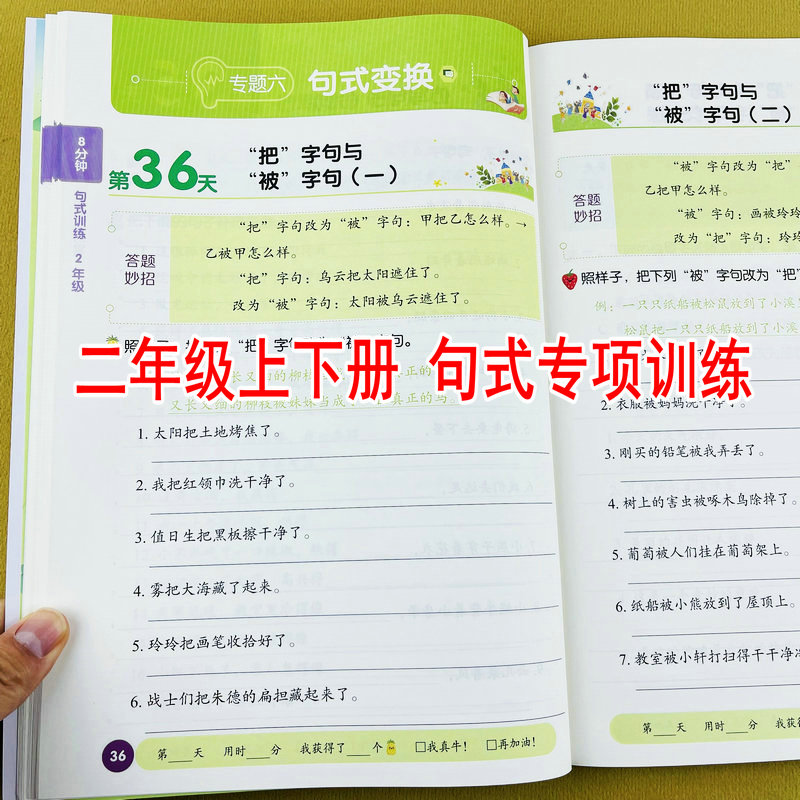 专题六 句式变换
8分钟
句式训练 2年级
第36天
“把”字句与
“被”字句（一）
答题
妙招
“把”字句改为“被”字句：甲把乙怎么样。→
乙被甲怎么样。
“把”字句：乌云把太阳遮住了。
改为“被”字句：太阳被乌云遮住了。
二年级上下册 句式专项训练
1. 太阳把土地烤焦了。
2. 我把红领巾洗干净了。
3. 值日生把黑板擦干净了。
4. 雾把大海藏了起来。
5. 玲玲把画笔收拾好了。
6. 战士们把朱德的扁担藏起来了。
36
第____天 用时____分 我获得了____个 □我真牛！ □再加油！
“把”字句与
“被”字句（二）
答题
妙招
“被”字句改为“把”
乙把甲怎么样。
“被”字句：画被玲玲
改为“把”字句：玲玲
照样子，把下列“被”字句改为“把”
例：一只只纸船被松鼠放到了小溪
松鼠把一只只纸船放到了小溪
2. 衣服被妈妈洗干净了。
3. 刚买的铅笔被我弄丢了。
4. 树上的害虫被啄木鸟除掉了。
5. 葡萄被人们挂在葡萄架上。
6. 纸船被小熊放到了屋顶上。
7. 教室被小轩打扫得干干净净
第____天 用时____分 我获得